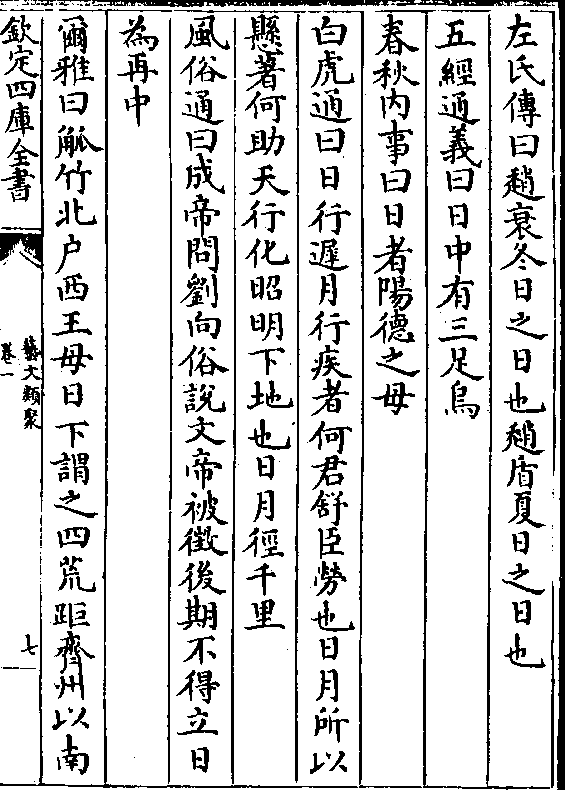 左氏傳曰趙衰冬日之日也趙盾夏日之日也
五經通義曰日中有三足烏
春秋内事曰日者陽德之母
白虎通曰日行遲月行疾者何君舒臣勞也日月所以
懸著何助天行化昭明下地也日月徑千里
風俗通曰成帝問劉向俗說文帝被徵後期不得立日
為再中
爾雅曰觚竹北户西王母日下謂之四荒距齊州以南
欽定四庫全書
藝文類聚
卷一
七